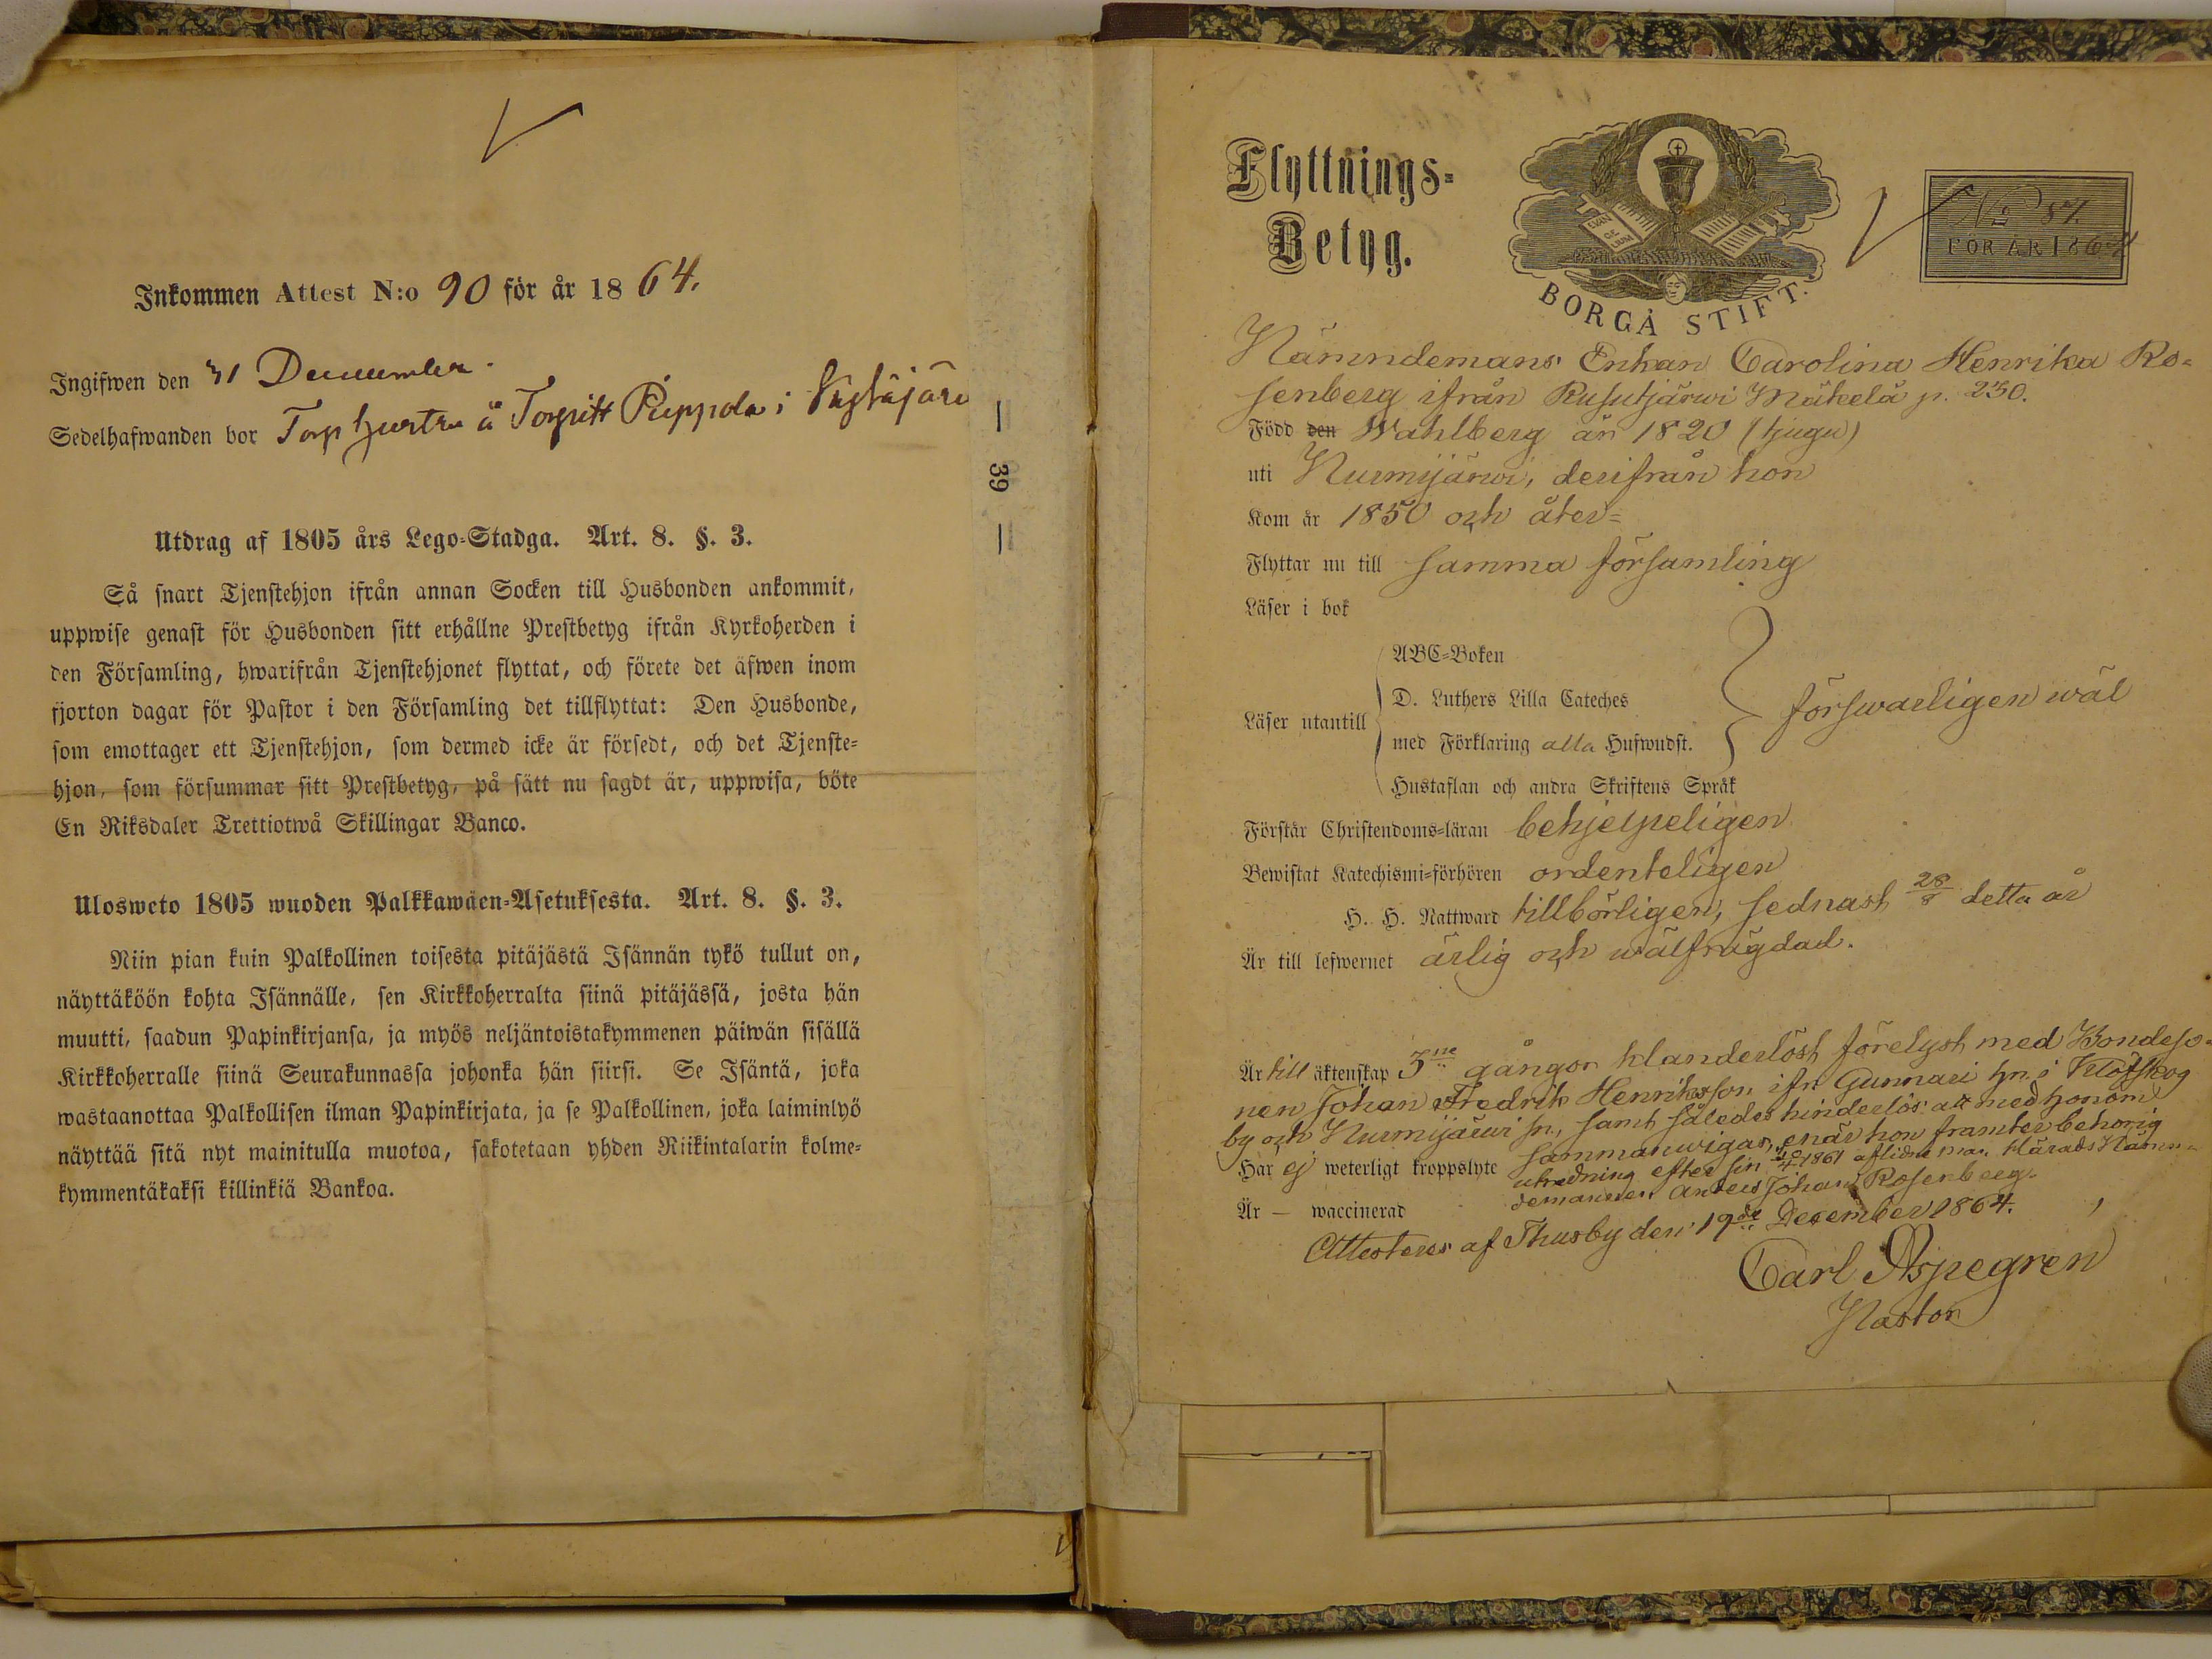 Inkommen Attest N:o 90 för år 1864.
Ingifwen den 31 December.
Sedelhafwanden bor Torp hustru å Torpitt Pieppola i
— 39 —
Utdrag af 1805 års Lego-Stadga. Art. 8. §. 3.
Så snart Tjenstehjon ifrån annan Socken till Husbonden ankommit,
uppwise genast för Husbonden sitt erhållne Prestbetyg ifrån Kyrkoherden i
den Församling, hwarifrån Tjenstehjonet flyttat, och förete det äfwen inom
fjorton dagar för Pastor i den Församling det tillflyttat: Den Husbonde,
som emottager ett Tjenstehjon, som dermed icke är försedt, och det Tjenste-
hjon, som försummar sitt Prestbetyg, på sätt nu sagdt är, uppwisa, böte
En Riksdaler Trettiotwå Skillingar Banco.
Ulosweto 1805 wuoden Palkkawäen-Asetuksesta. Art. 8. §. 3.
Niin pian kuin Palkollinen toisesta pitäjästä Isännän tykö tullut on,
näyttäköön kohta Isännälle, sen Kirkkoherralta siinä pitäjässä, josta hän
muutti, saadun Papinkirjansa, ja myös neljäntoistakymmenen päiwän sisällä
Kirkkoherralle siinä Seurakunnassa johonka hän siirsi. Se Isäntä, joka
wastaanottaa Palkollisen ilman Papinkirjata, ja se Palkollinen, joka laiminlyö
näyttää sitä nyt mainitulla muotoa, sakotetaan yhden Riikintalarin kolme-
kymmentäkaksi killinkiä Bankoa.
Flyttnings-
Betyg.
EVAN
GE
LIUM
BORGÅ STIFT.
No 87.
FÖR ÅR 1864
Nämndemans Enkan Carolina Henrika Ro-
senberg ifrån Rusutjärwi Mäkelä p. 230.
Född den Wahlberg år 1820 (tjugu)
uti Nurmijärwi, derifrån hon
Kom år 1850 och åter-
Flyttar nu till samma församling
Läser i bok
ABC-Boken
D. Luthers Lilla Cateches
Läser utantill
med Förklaring alla Hufwudst.
försvarligen wäl
Hustaflan och andra Skriftens Språk
Förstår Christendoms-läran behjelpeligen
Bewistat Katechismi-förhören ordenteligen
H. H. Nattward tillbörligen, sednast 28/8 detta år
Är till lefwernet ärlig och wälfrägdad.
Är till äktenskap 3ne gångor klanderlöst förelyst med Bondeso-
nen Johan Fredrik Henriksson ifn Gunnari hn i Klöfskog
by och Nurmijärwi sn, samt således hinderlös att med honom
sammanwigas, enär hon framter behörig
Har ej weterligt kroppslyte
utredning efter sin 1861 aflidne man Härads Nämn-
demannen Anders Johan Rosenberg.
Är — waccinerad
Attesteras af Thusby den 19de December 1864.
Carl Aspegren
Pastor